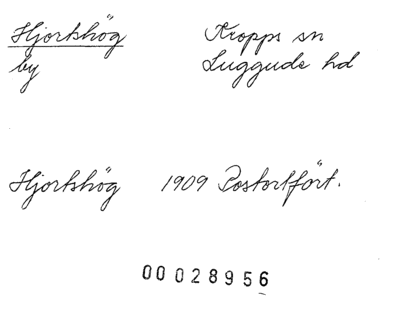 Hjortshög Kropps sn
by Luggude hd
Hjortshög 1909 Postortfört.
00028956